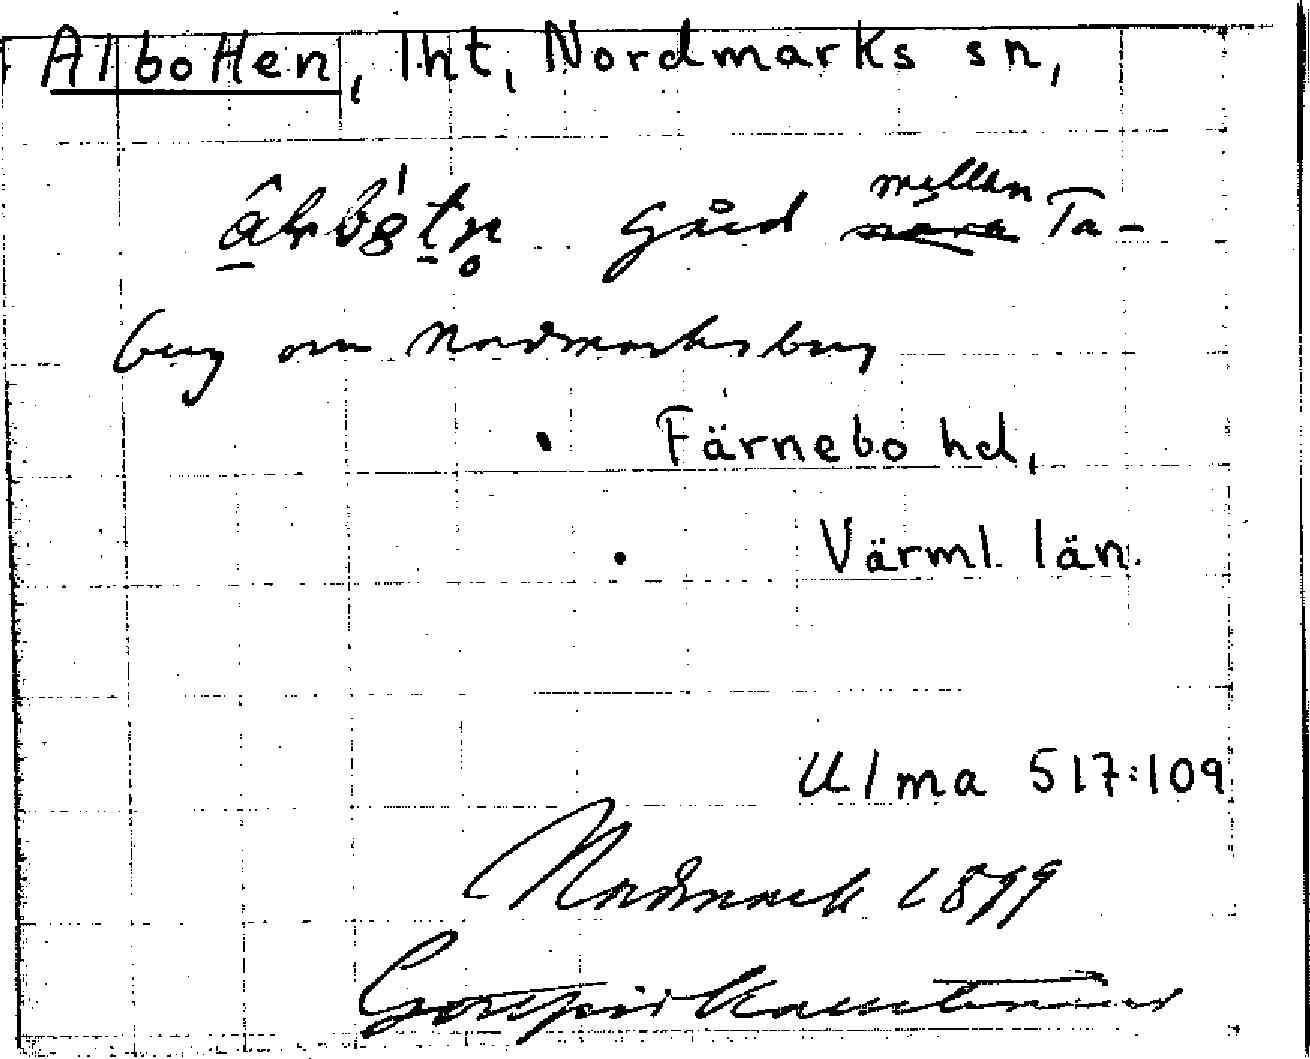 Albotten, lht, Nordmarks sn,
gård mellan Ta-
berg om Nordmarksberg
Färnebo hd,
Värml. län.
Ulma 517:109
Nordmark 1899
Gottfrid Kallstenius